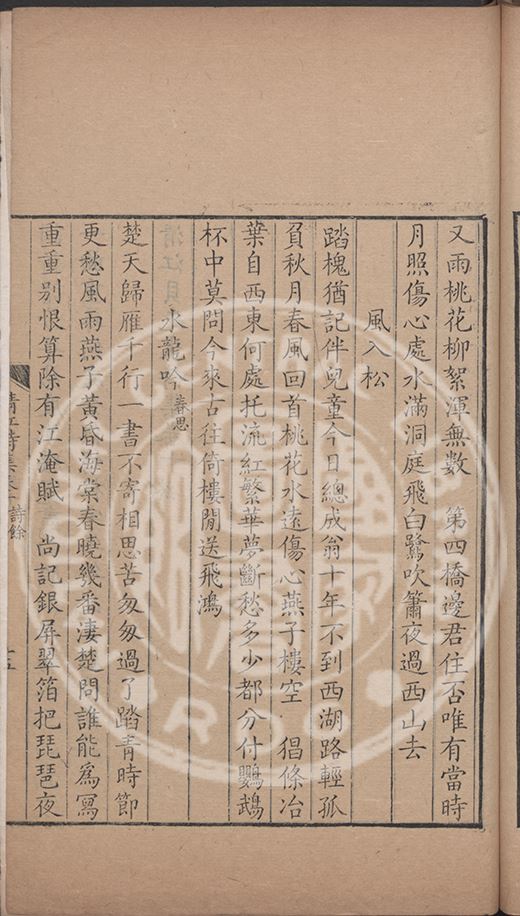 又雨桃花柳絮渾無數　第四橋邊君住否唯有當時
月照傷心處水滿洞庭飛白鷺吹簫夜過西山去
風入松
踏槐猶記伴兒童今日總成翁十年不到西湖路輕孤
負秋月春風回首桃花水遠傷心燕子樓空　猖條冶
葉自西東何處托流紅繁華夢斷愁多少都分付鸚鵡
杯中莫問今來古往倚樓閒送飛鴻
水龍吟 春思
楚天歸雁千行一書不寄相思苦匆匆過了踏青時節
更愁風雨燕子黃昏海棠春曉幾番淒楚問誰能爲寫
重重别恨算除有江淹賦　尚記銀屏翠箔把琵琶夜
清江詩集卷十 詩餘